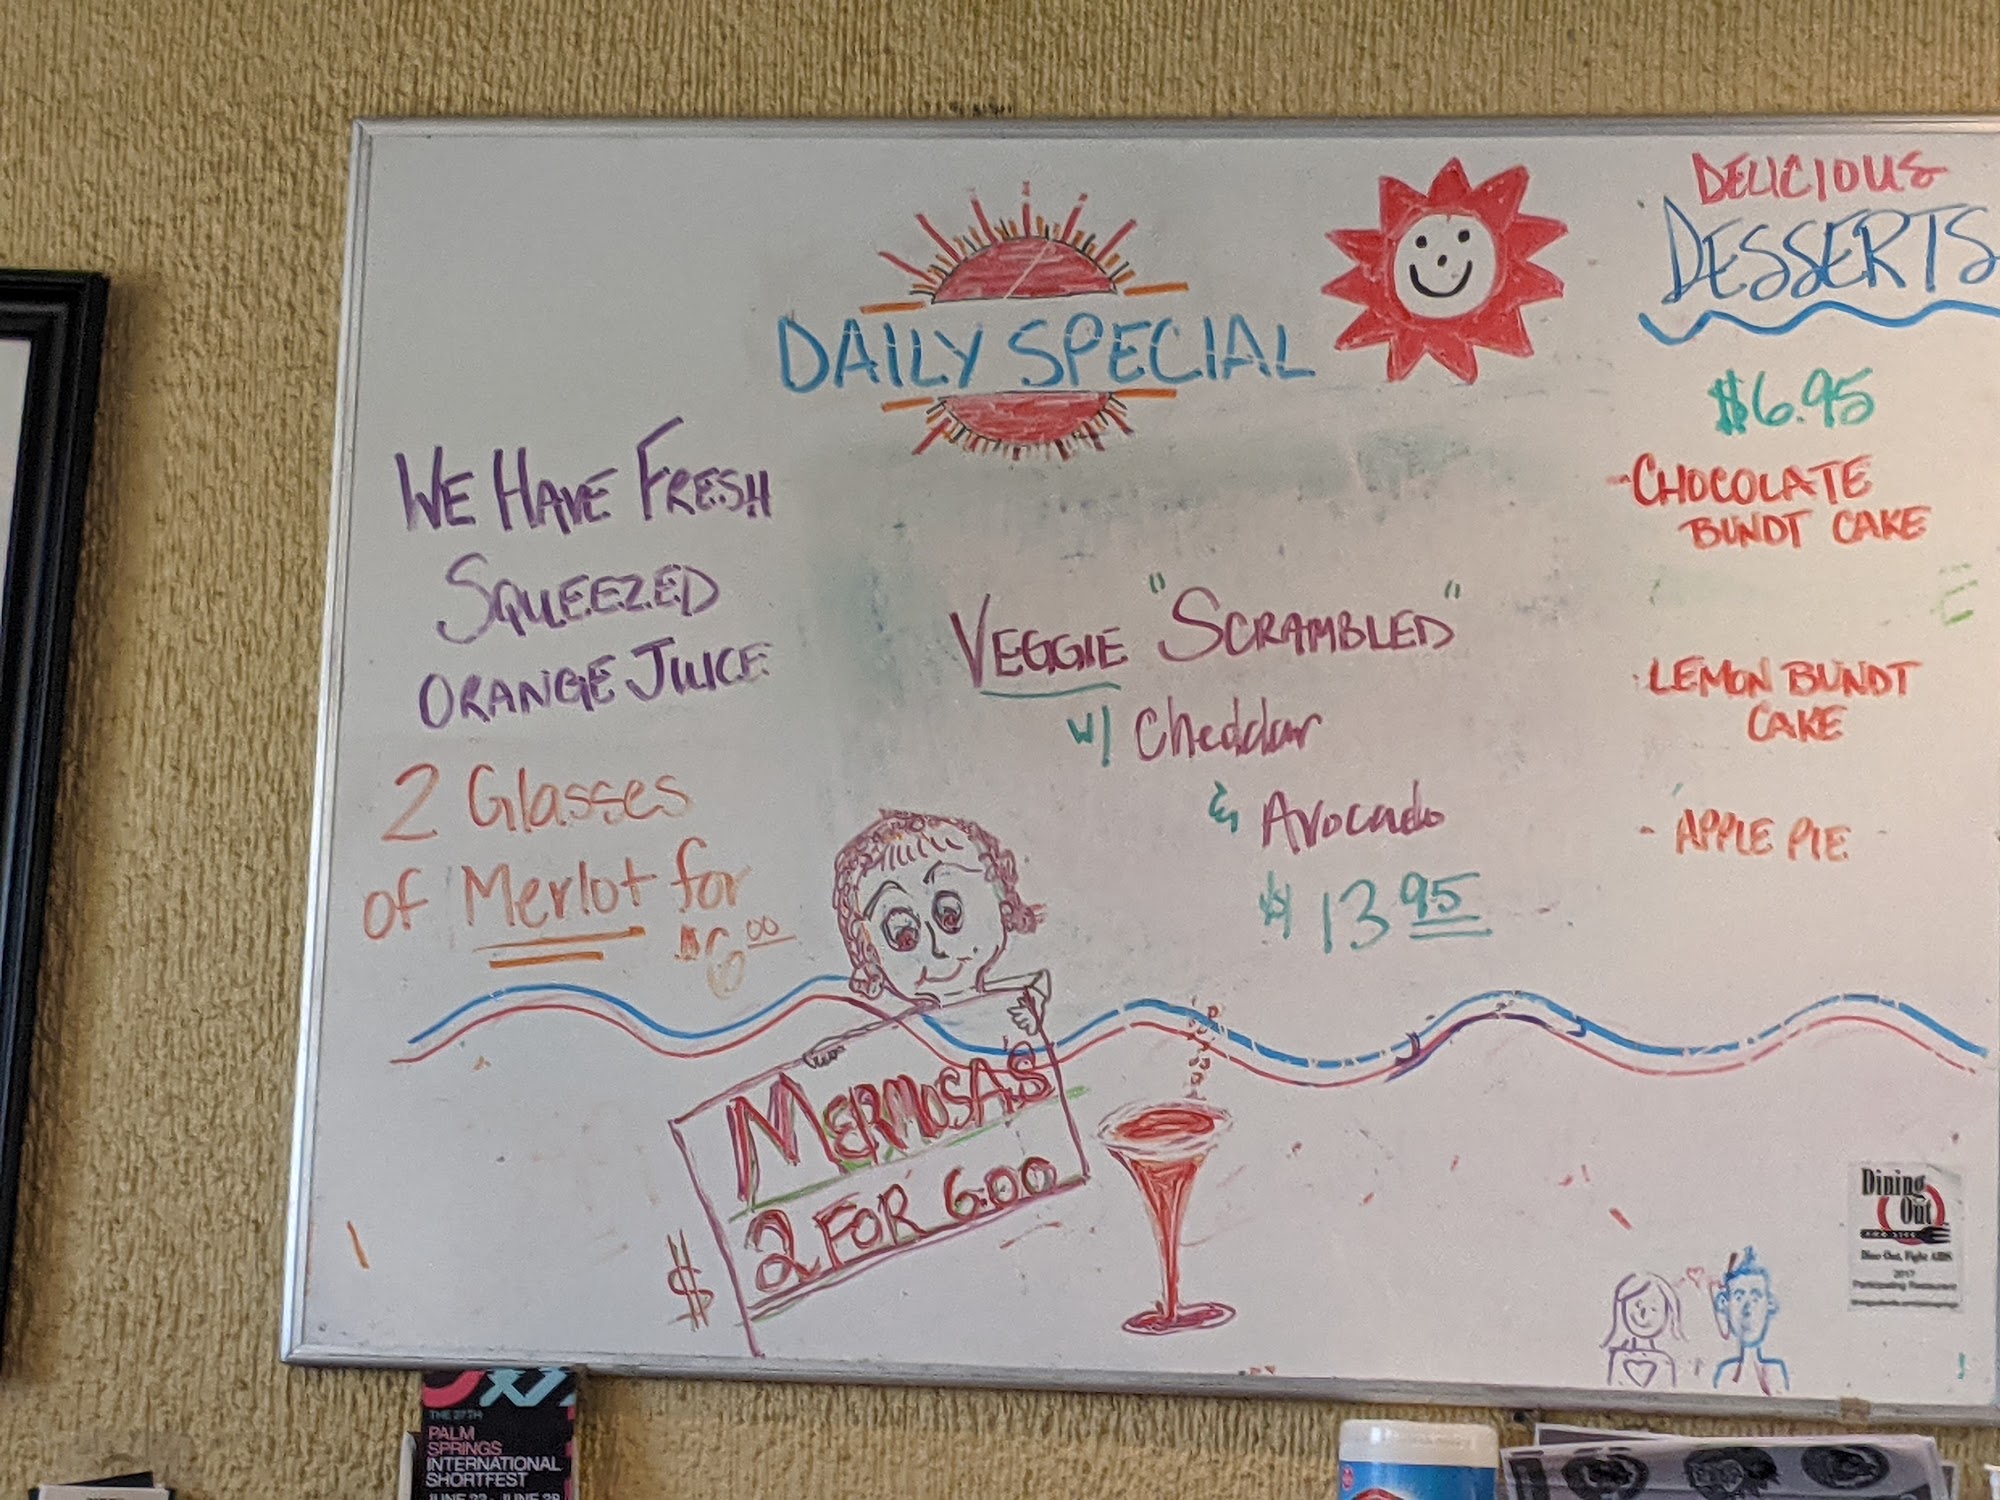 DAILY SPECIAL
WE HAVE FRESH
SQUEEZED
ORANGE JUICE
2 Glasses
of Merlot for
$6.00
VEGGIE "SCRAMBLED"
w/ Cheddar
& Avocado
$13.95
DELICIOUS
DESSERTS
$6.95
-CHOCOLATE
BUNDT CAKE
-LEMON BUNDT
CAKE
- APPLE PIE
MERMOSA'S
$ 2 FOR 6.00
Dining
Out
FOR LIFE
Dine Out, Fight AIDS
2017
Participating Restaurant
THE 27TH
PALM
SPRINGS
INTERNATIONAL
SHORTFEST
JUNE 22 - JUNE 28